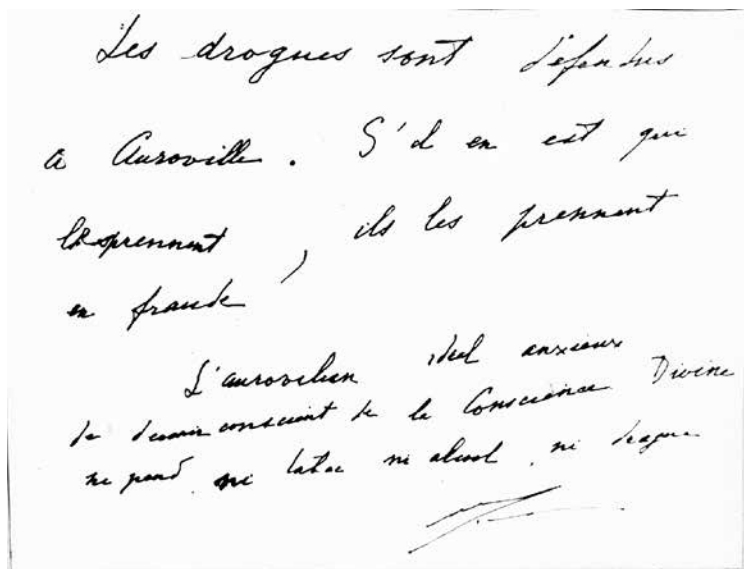 Les drogues sont défendues
a Auroville. S'il en est qui
les prennent, ils les prennent
en fraude
L'aurovilien idéal anxieux
de devenir conscient de la Conscience Divine
ne prend ni tabac ni alcool, ni drogue